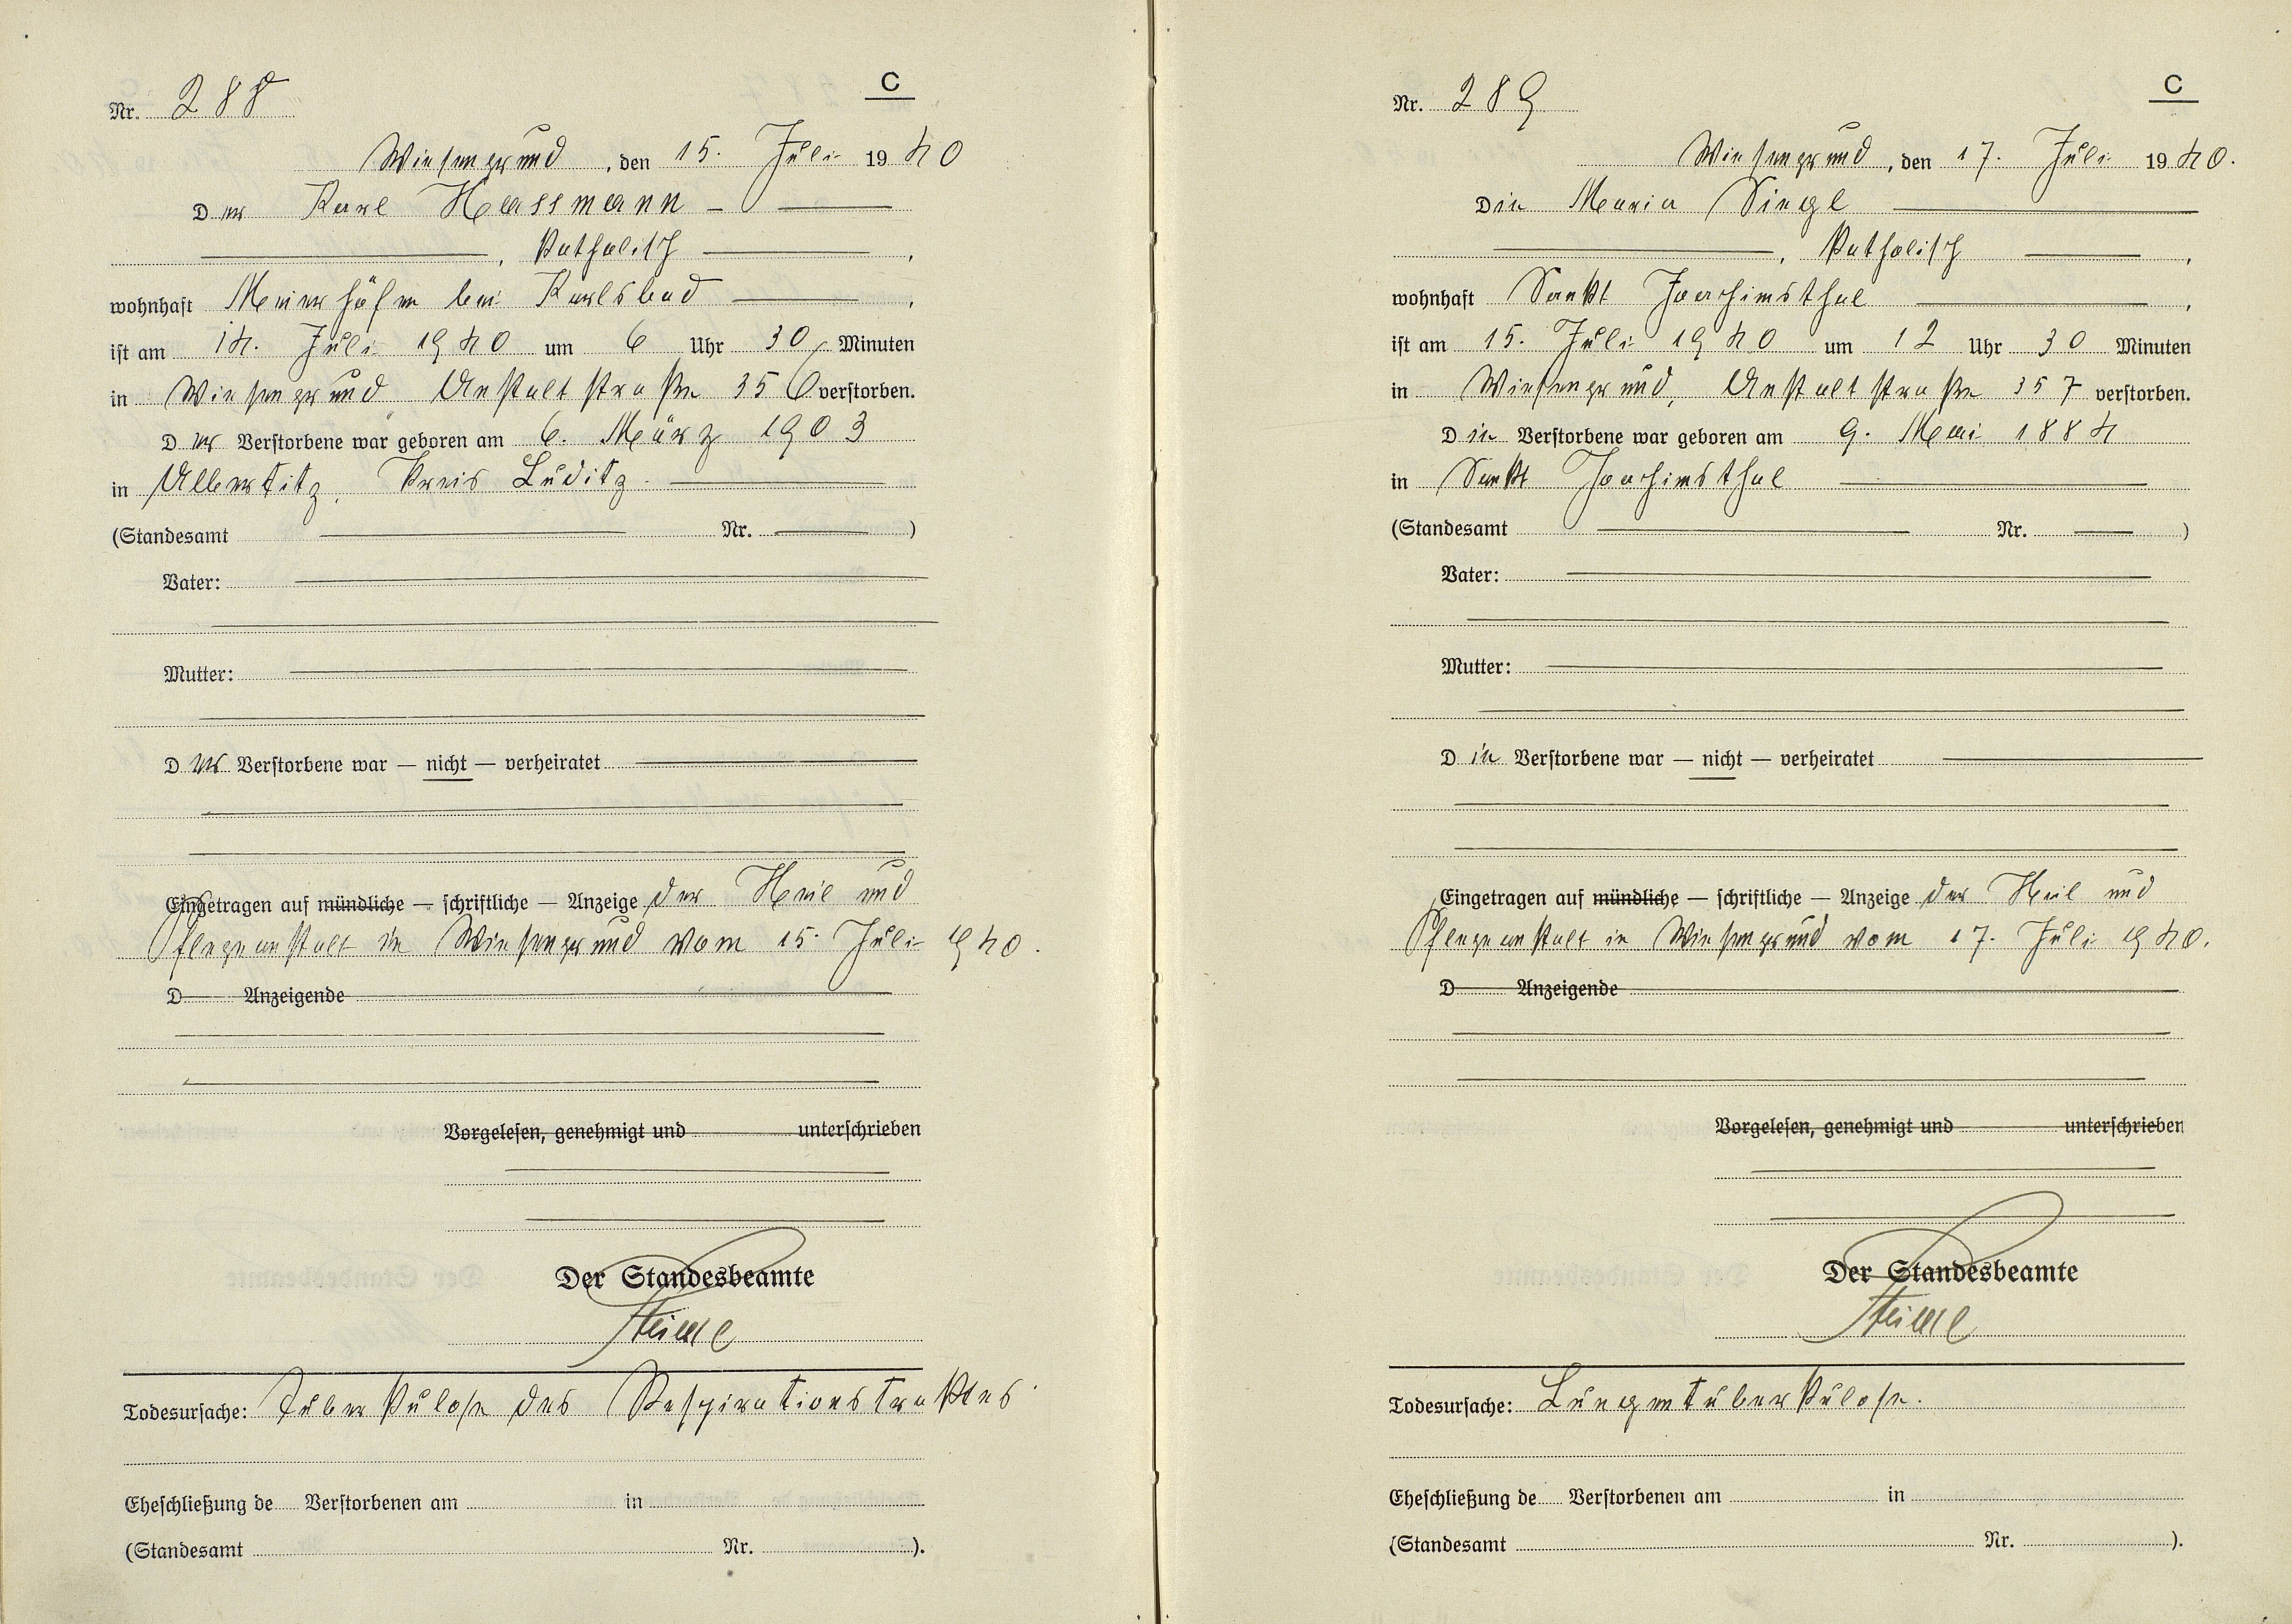 C
Nr. 288
Wiesengrund, den 15. Juli 1940
Der Karl Hassmann
, Katholisch ,
wohnhaft Meierhöfen bei Karlsbad ,
ist am 14. Juli 1940 um 6 Uhr 30 Minuten
in Wiesengrund Anstaltstraße 356 verstorben.
Der Verstorbene war geboren am 6. März 1903
in Albertitz, Kreis Luditz.
(Standesamt Nr. )
Vater:
Mutter:
Der Verstorbene war — nicht — verheiratet
Eingetragen auf mündliche — schriftliche — Anzeige der Heil und
Pflegeanstalt in Wiesengrund vom 15. Juli 1940.
D Anzeigende
Vorgelesen, genehmigt und unterschrieben
Der Standesbeamte
Todesursache: Tuberkulose des Respirationstraktes.
Eheschließung de Verstorbenen am in
(Standesamt Nr. ).
C
Nr. 289
Wiesengrund, den 17. Juli 1940.
Die Maria Siegl
, Katholisch ,
wohnhaft Sankt Joachimsthal ,
ist am 15. Juli 1940 um 12 Uhr 30 Minuten
in Wiesengrund, Anstaltstraße 357 verstorben.
Die Verstorbene war geboren am 9. Mai 1884
in Sankt Joachimsthal
(Standesamt Nr. )
Vater:
Mutter:
Die Verstorbene war — nicht — verheiratet
Eingetragen auf mündliche — schriftliche — Anzeige der Heil und
Pflegeanstalt in Wiesengrund vom 17. Juli 1940.
D Anzeigende
Vorgelesen, genehmigt und unterschrieben
Der Standesbeamte
Todesursache: Lungentuberkulose.
Eheschließung de Verstorbenen am in
(Standesamt Nr. ).